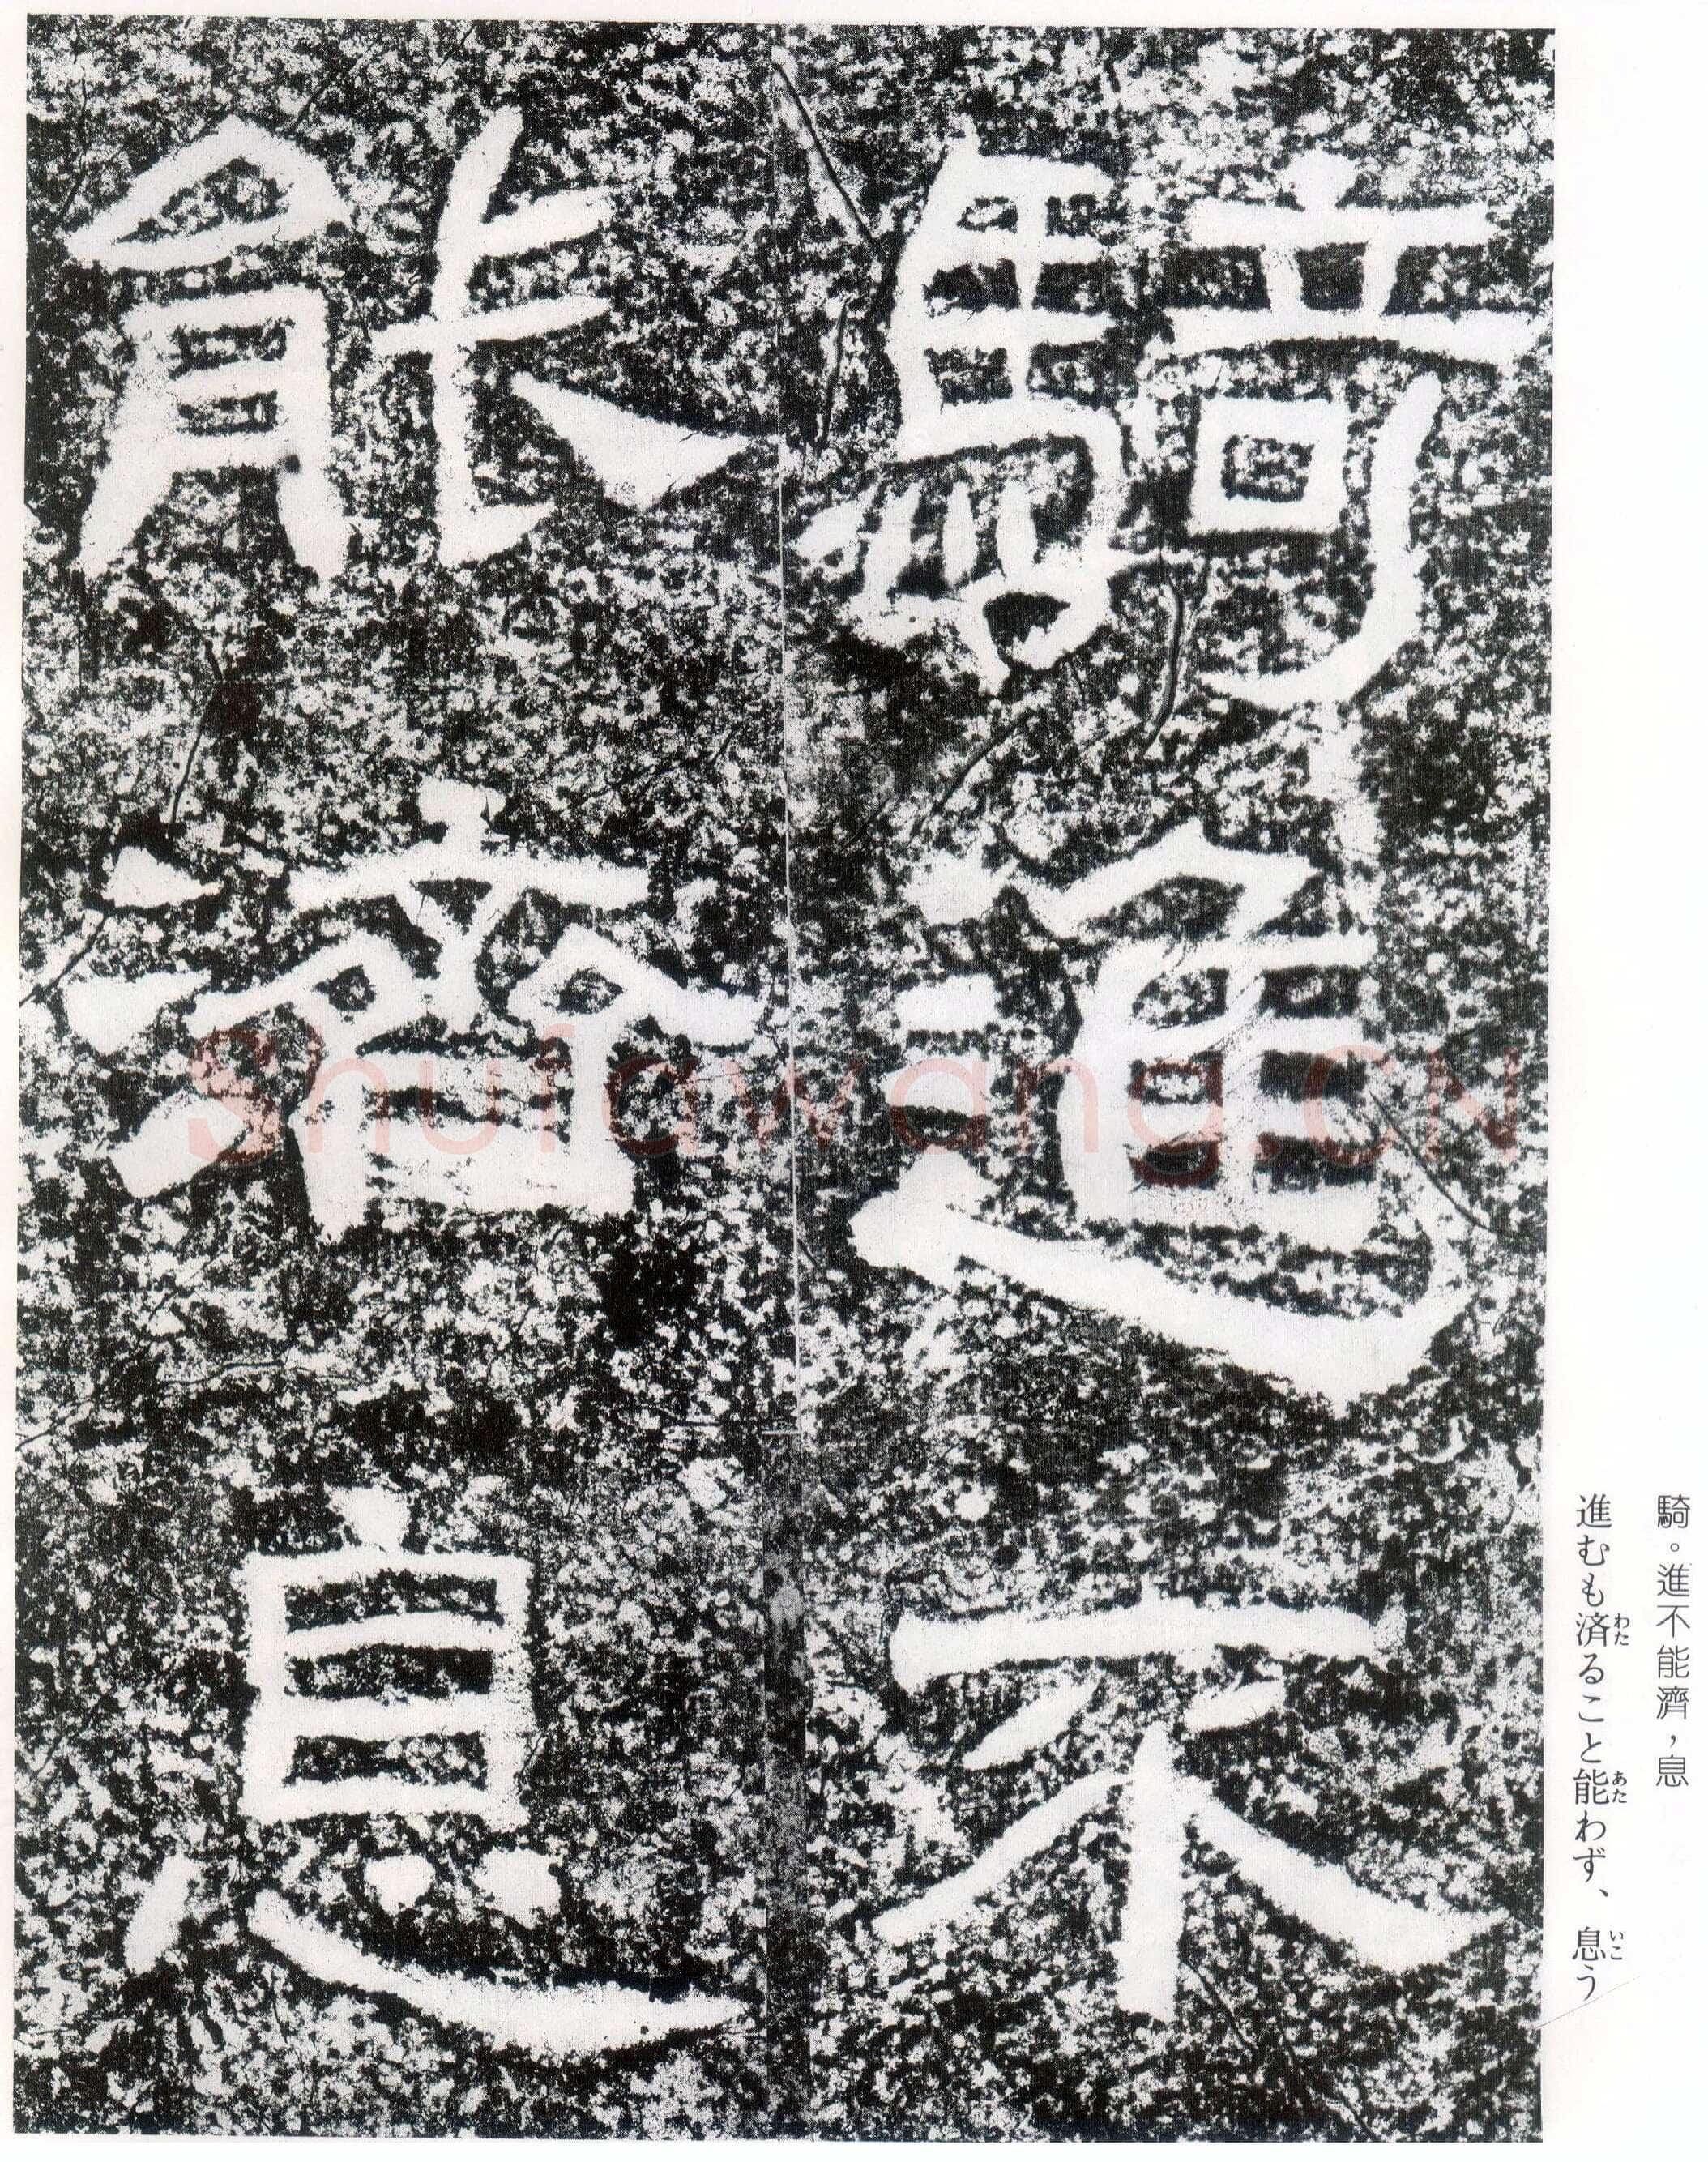 騎。進不能濟，息
進むも済ることと能わず、息う
わた
あた
いこ
騎進不
能濟息
Shufawang.CN